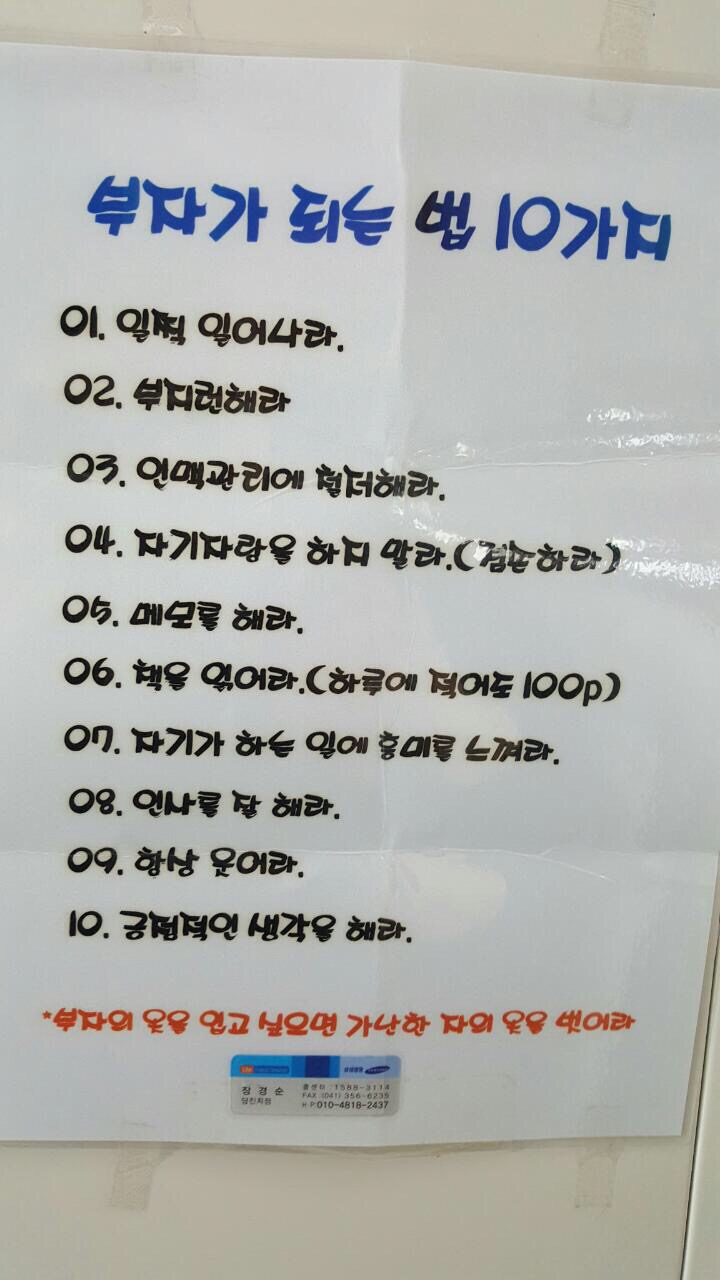 부자가 되는 법 10가지
01. 일찍 일어나라.
02. 부지런해라
03. 인맥관리에 철저해라.
04. 자기자랑을 하지 말라.(겸손하라)
05. 메모를 해라.
06. 책을 읽어라.(하루에 적어도 100p)
07. 자기가 하는 일에 흥미를 느껴라.
08. 인사를 잘 해라.
09. 항상 웃어라.
10. 긍정적인 생각을 해라.
*부자의 옷을 입고 싶으면 가난한 자의 옷을 벗어라
삼성생명
장경순
당진지점
콜센터:1588-3114
FAX:(041) 356-6235
H·P:010-4818-2437